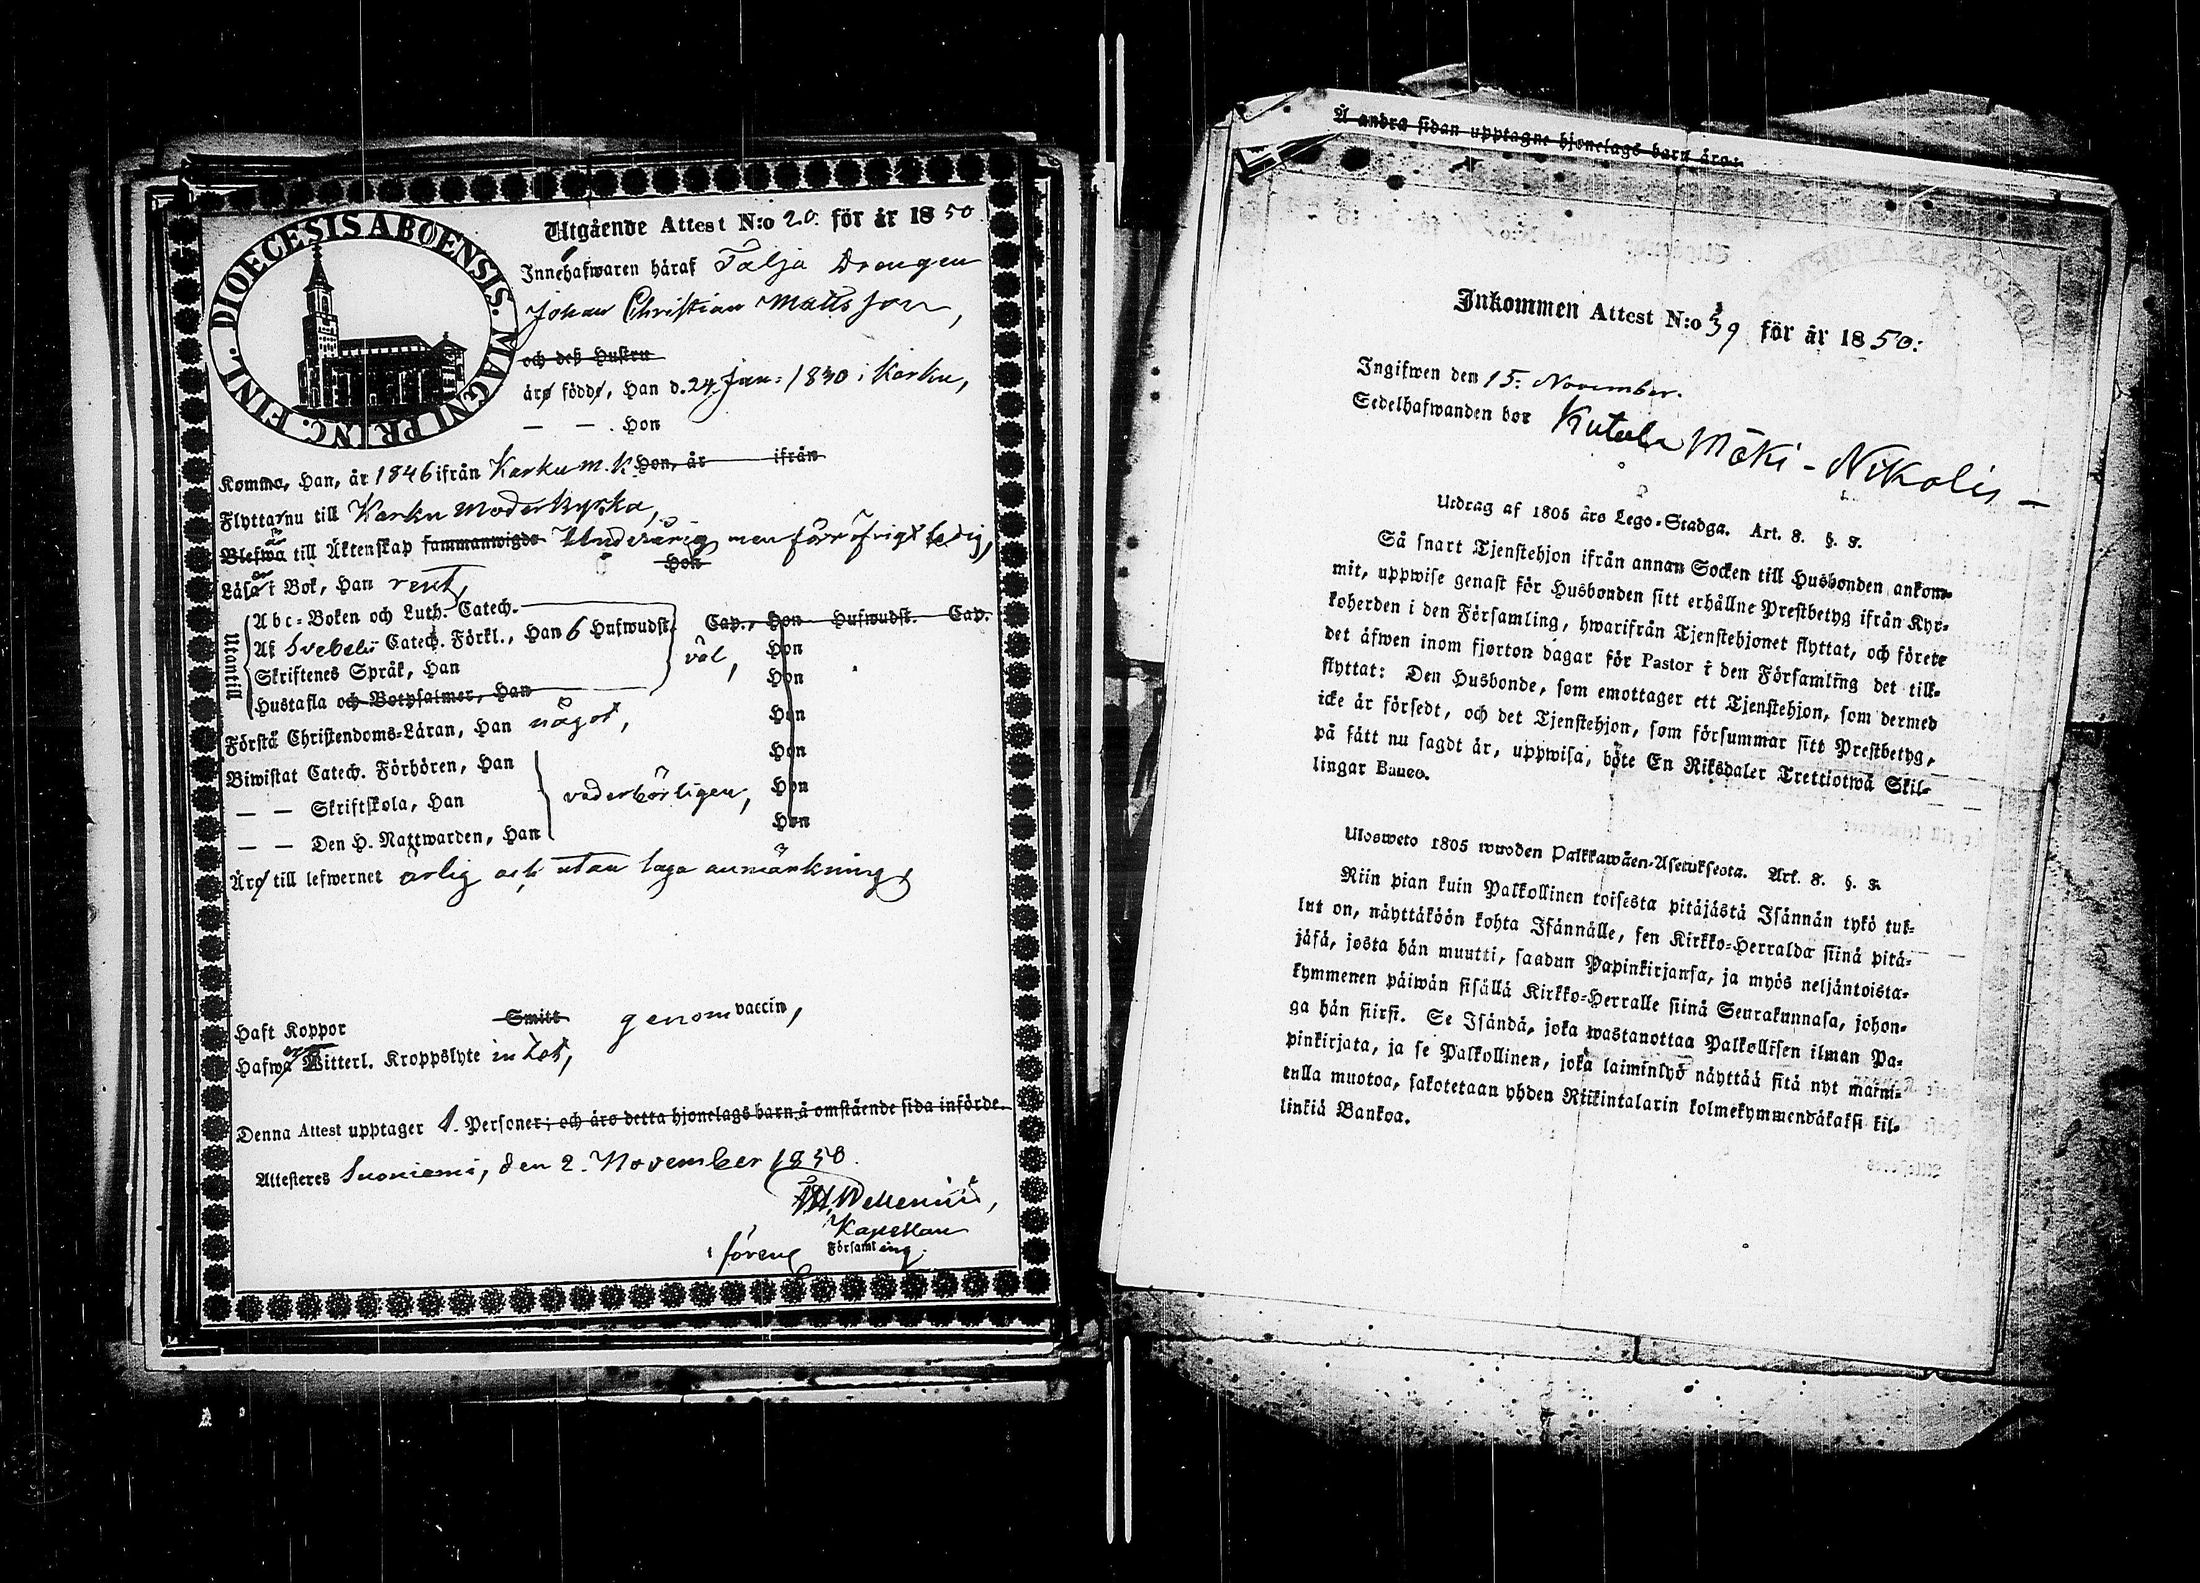 DIOECESIS ABOENSIS. MAGNI PRINC. FINL.
Utgående Attest N:o 20. för år 1850
Innehafwaren häraf Talja Drengen
Johan Christian Mattsson,
och deß Hustru
äro födde, Han d. 24 Jan: 1830 i Karku,
— — Hon
Komne, Han, år 1846 ifrån Karku m. k. Hon, år ifrån
Flyttar nu till Karku Moderkyrka,
Blefwa till Äktenskap sammanwigde Underårig men för öfrigt ledig,
Hon
Läsa i Bok, Han rent,
Utantill
Abc-Boken och Luth. Catech.
Af Svebelii Catech. Förkl., Han 6 Hufwudst. Cap., Hon Hufwudst. Cap.
väl, Hon
Skriftenes Språk, Han Hon
Hustafla och Botpsalmer, Han Hon
Förstå Christendoms-Läran, Han något, Hon
Biwistat Catech. Förhören, Han Hon
— — Skriftskola, Han vederbörligen, Hon
— — Den H. Nattwarden, Han Hon
Äro till lefwernet ärlig och utan laga anmärkning,
Haft Koppor Smitt genom vaccin,
Hafwa Witterl. Kroppslyte intet,
Denna Attest upptager 1. Personer; och äro detta hjonelags barn å omstående sida införde.
Attesteres Suoniemi, den 2. November 1850.
Kapellan
i föreng Församling.
Å andra sidan upptagne hjonelags barn äro:
Inkommen Attest N:o 39 för år 1850:
Ingifwen den 15: November.
Sedelhafwanden bor Kutala Mäki - Nikolis -
Utdrag af 1805 års Lego-Stadga. Art. 8. §. 3.
Så snart Tjenstehjon ifrån annan Socken till Husbonden ankom-
mit, uppwise genast för Husbonden sitt erhållne Prestbetyg ifrån Kyr-
koherden i den Församling, hwarifrån Tjenstehjonet flyttat, och förete
det äfwen inom fjorton dagar för Pastor i den Församling det till-
flyttat: Den Husbonde, som emottager ett Tjenstehjon, som dermed
icke är försedt, och det Tjenstehjon, som försummar sitt Prestbetyg,
på sätt nu sagdt är, uppwisa, böte En Riksdaler Trettiotwå Skil-
lingar Banco.
Ulosweto 1805 wuoden Palkkawäen-Asetuksesta. Art. 8. §. 3.
Niin pian kuin Palkollinen toisesta pitäjästä Isännän tykö tul-
lut on, näyttäköön kohta Isännälle, sen Kirkko-Herralda siinä pitä-
jäsä, josta hän muutti, saadun Papinkirjansa, ja myös neljäntoista-
kymmenen päiwän sisällä Kirkko-Herralle siinä Seurakunnasa, johon-
ga hän siirsi. Se Isändä, joka wastanottaa Palkollisen ilman Pa-
pinkirjata, ja se Palkollinen, joka laiminlyö näyttää sitä nyt maini-
tulla muotoa, sakotetaan yhden Riikintalarin kolmekymmendäkaksi kil-
linkiä Bankoa.